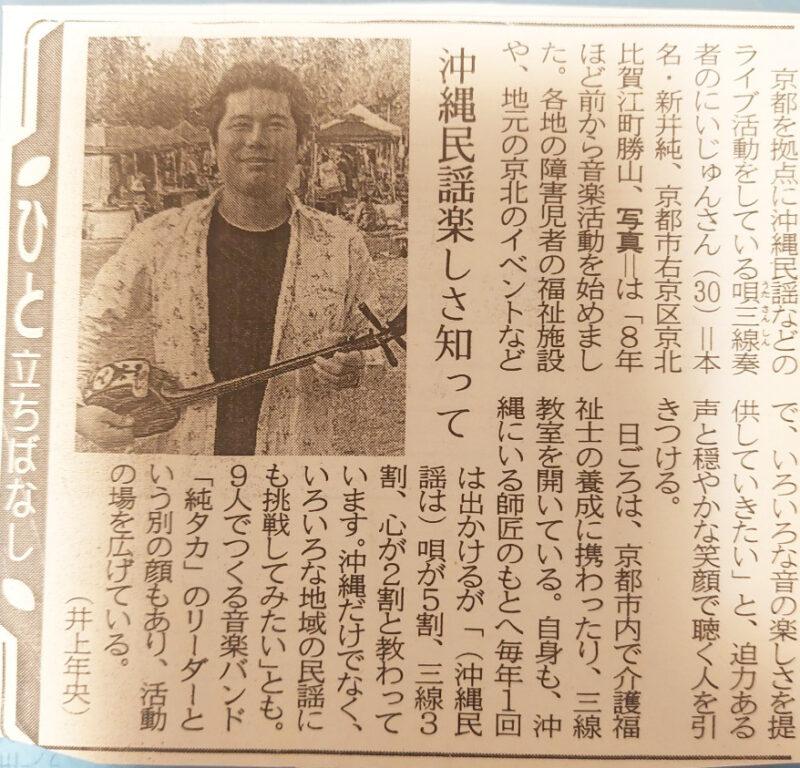 ひと立ちばなし
沖縄民謡楽しさ知って
京都を拠点に沖縄民謡などの
ライブ活動をしている唄三線奏
うたさんしん
者のにいじゅんさん(30)=本
名・新井純、京都市右京区京北
比賀江町勝山、写真=は「8年
ほど前から音楽活動を始めまし
た。各地の障害児者の福祉施設
や、地元の京北のイベントなど
で、いろいろな音の楽しさを提
供していきたい」と、迫力ある
声と穏やかな笑顔で聴く人を引
きつける。
日ごろは、京都市内で介護福
祉士の養成に携わったり、三線
教室を開いている。自身も、沖
縄にいる師匠のもとへ毎年1回
は出かけるが「(沖縄民
謡は)唄が5割、三線3
割、心が2割と教わって
います。沖縄だけでなく、
いろいろな地域の民謡に
も挑戦してみたい」とも。
9人でつくる音楽バンド
「純タカ」のリーダーと
いう別の顔もあり、活動
の場を広げている。
(井上年央)